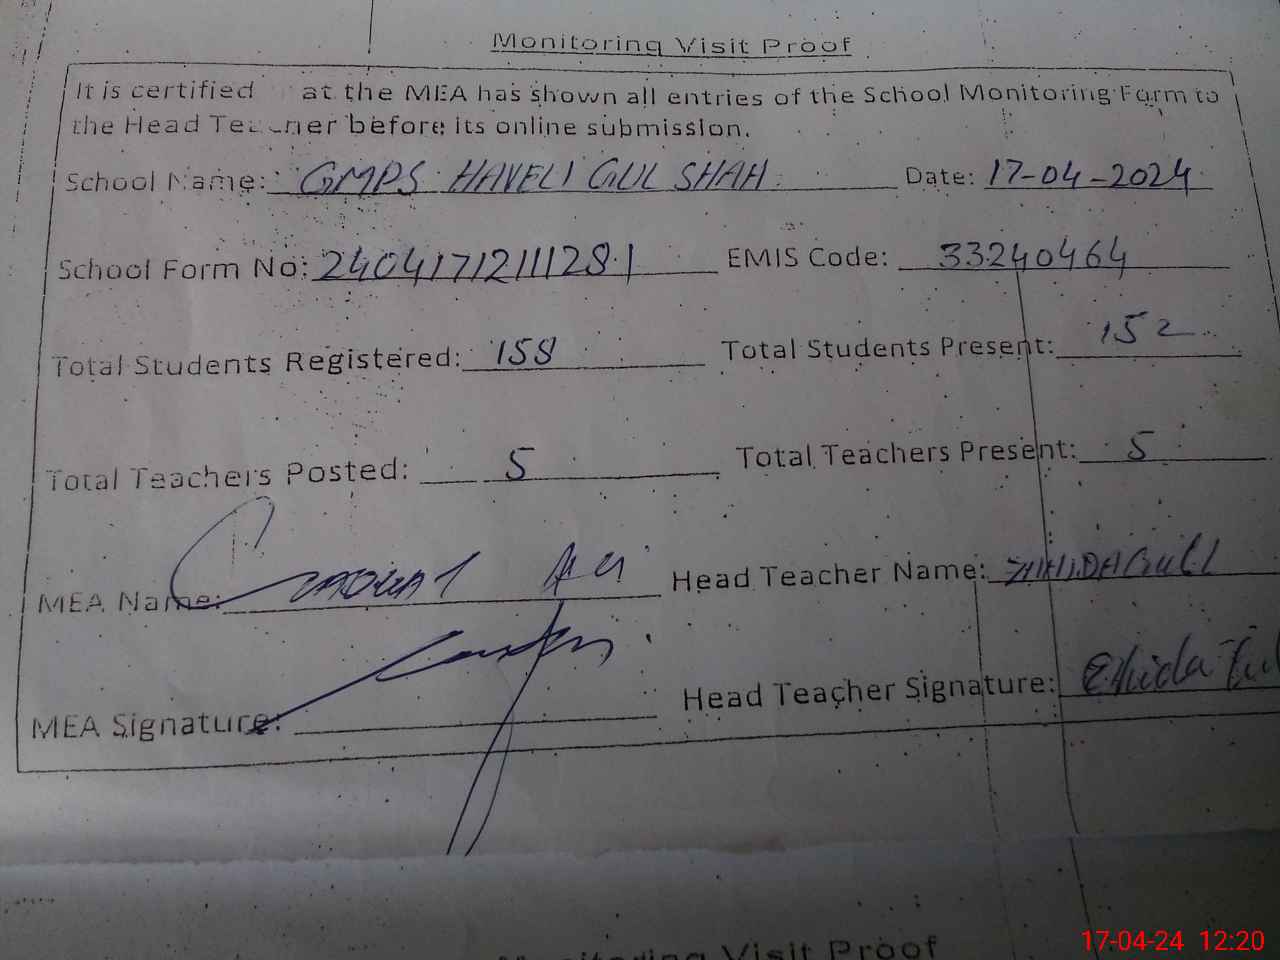 Monitoring Visit Proof
It is certified at the MEA has shown all entries of the School Monitoring Form to
the Head Teacher before its online submission.
School Name: GMPS HAVELI GUL SHAH Date: 17-04-2024
School Form No: 240417121111281 EMIS Code: 33240464
Total Students Registered: 158 Total Students Present: 152
Total Teachers Posted: 5 Total Teachers Present: 5
MEA Name: Ali Head Teacher Name:
MEA Signature: Head Teacher Signature:
Monitoring Visit Proof
17-04-24 12:20